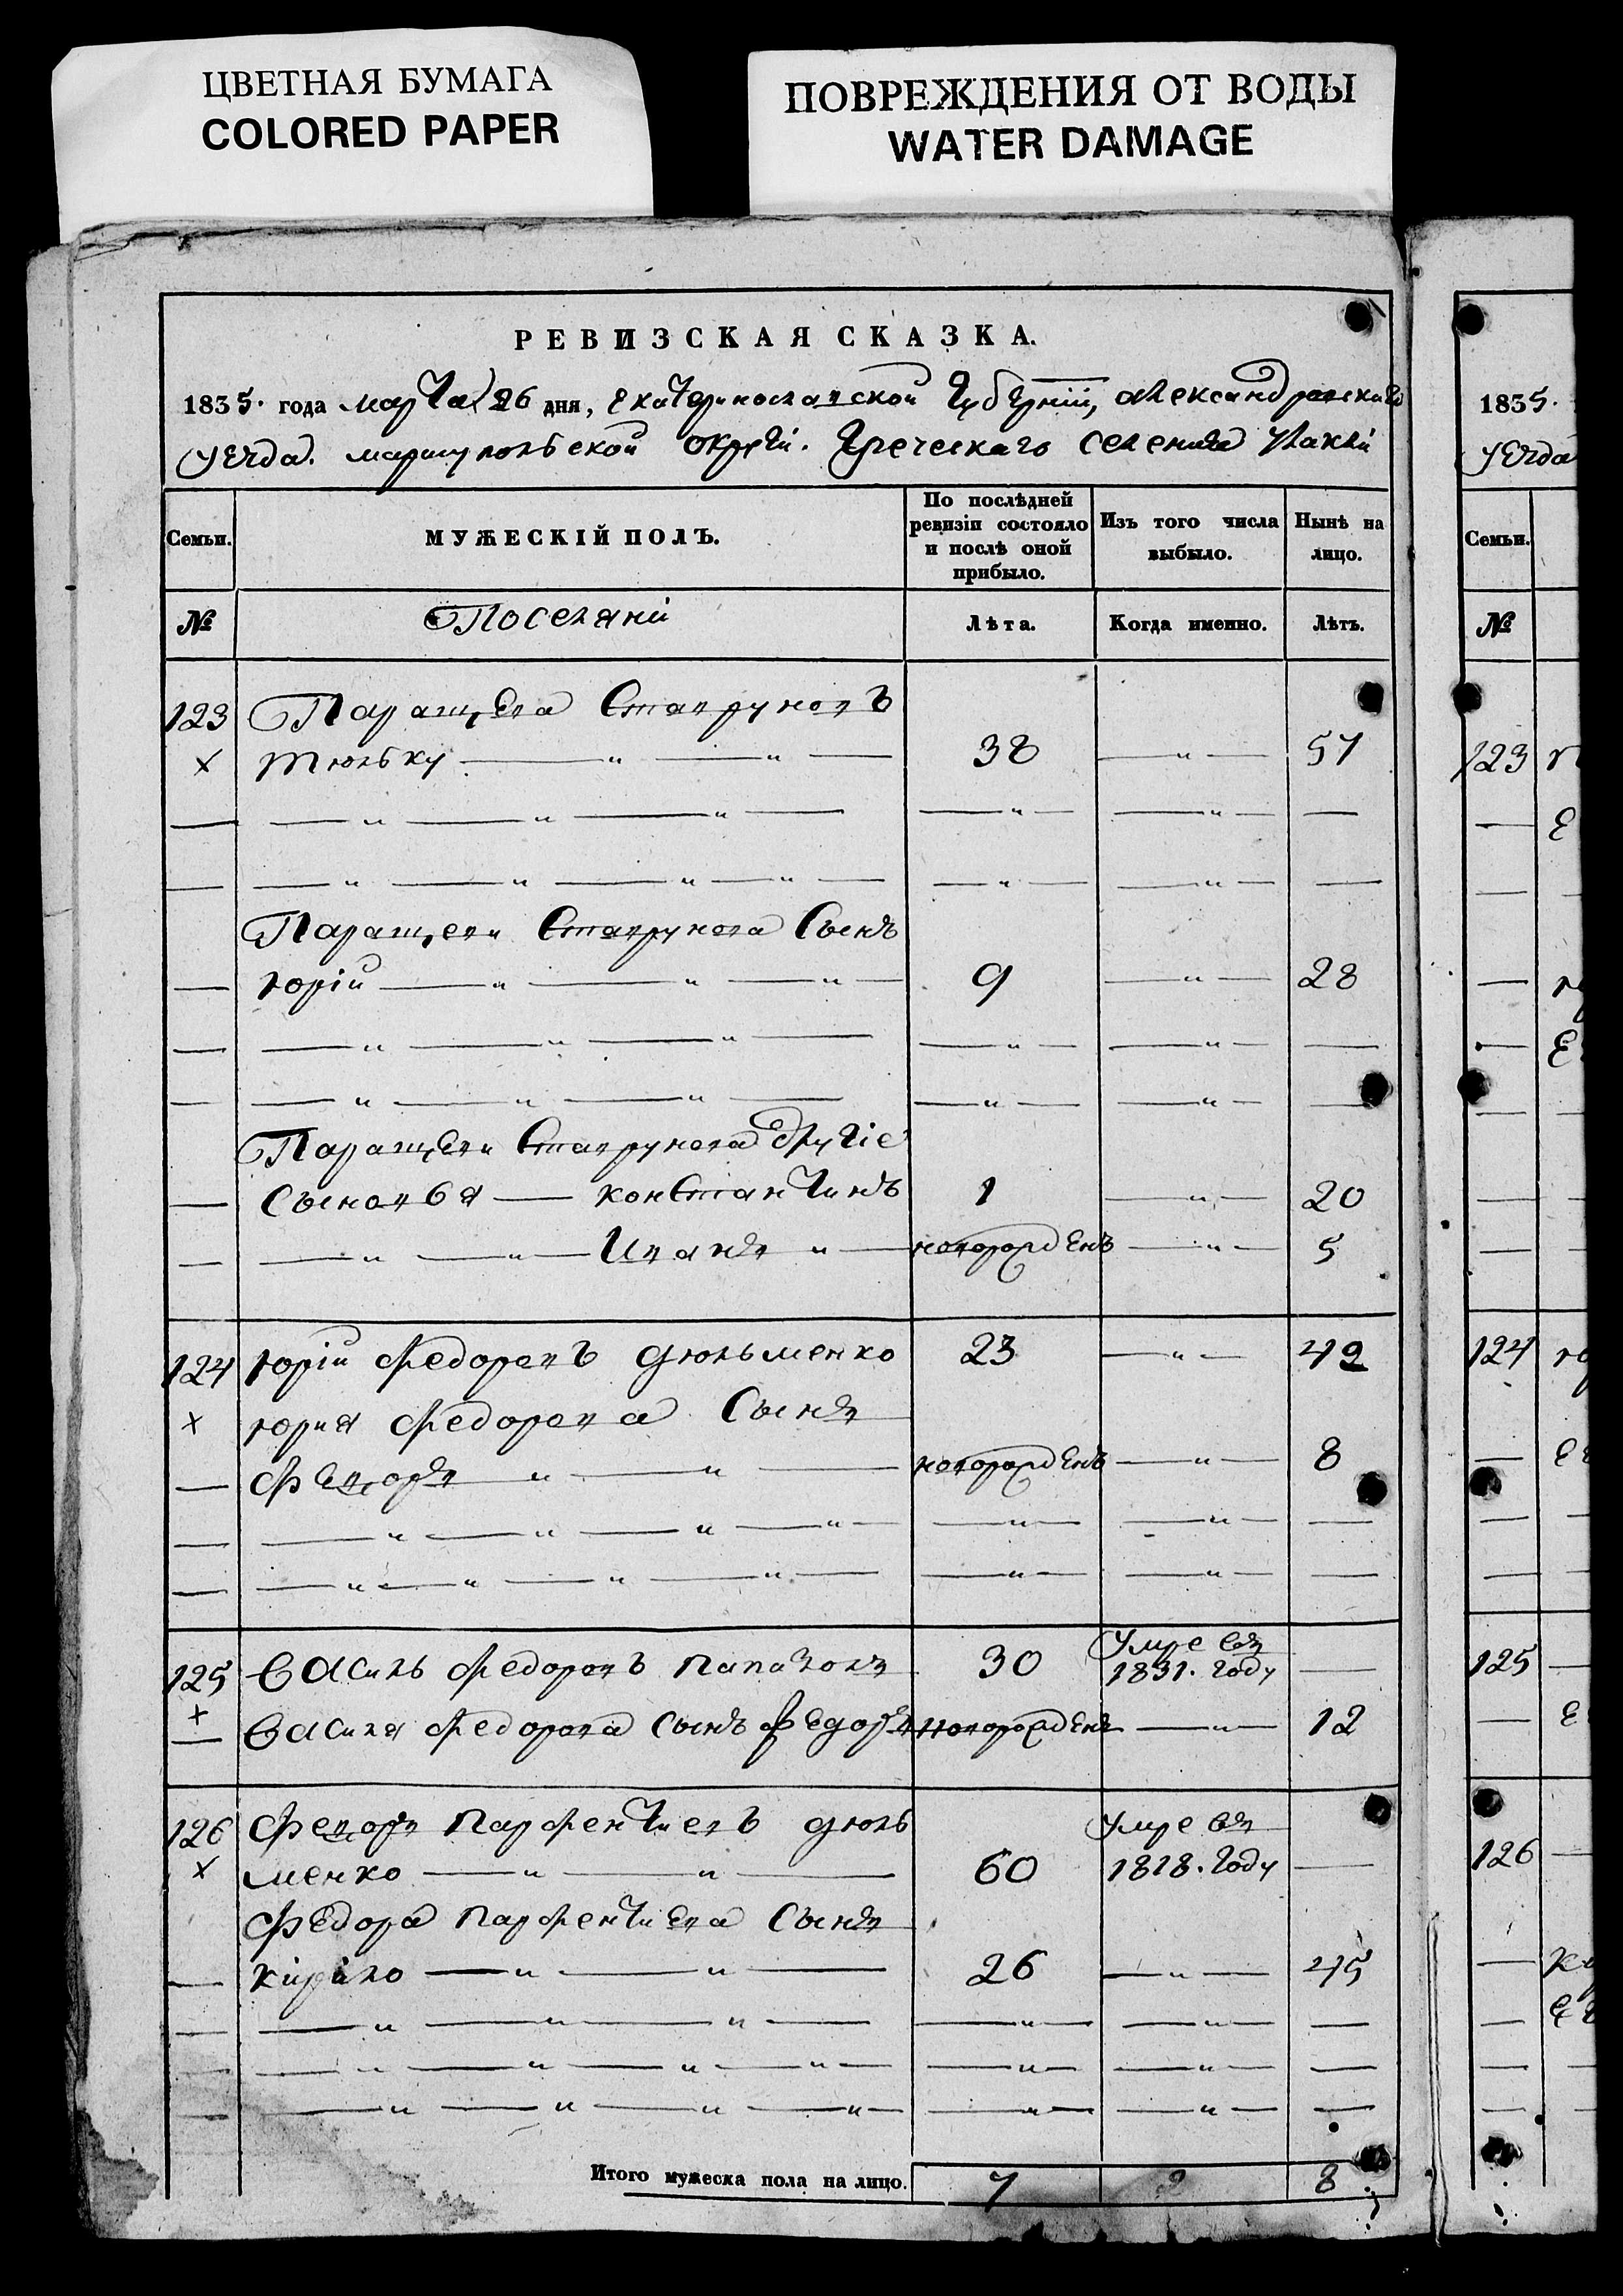 ЦВЕТНАЯ БУМАГА
COLORED PAPER
ПОВРЕЖДЕНИЯ ОТ ВОДЫ
WATER DAMAGE
РЕВИЗСКАЯ СКАЗКА.
1835. года марта 26 дня, екатеринославской губерніи, александровскаго
уезда. мариупольской округи. греческаго селения
Семьи.
МУЖЕСКІЙ ПОЛЪ.
По послѣдней ревизіи состояло и послѣ оной прибыло.
Изъ того числа выбыло.
Нынѣ на лицо.
№
Поселяни
Лѣта.
Когда именно.
Лѣтъ.
123 Паращева Ставруновъ
тюльку 38 57
Паращеви Ставрунова Сынъ
юрій 9 28
Паращеви Ставрунова другіе
Сыновья константинъ 1 20
Иванъ новорожденъ 5
124 юрій федоровъ дюльменко 23 42
юрия федорова Сынъ
федоръ новорожденъ 8
125 василь федоровъ папазолъ 30 умре въ 1831. году
василя федорова сынъ федоръ новорожденъ 12
126 федоръ парфентиевъ дюль
менко 60 умре въ 1818. году
федора парфентиева Сынъ
киріко 26 45
Итого мужеска пола на лицо. 7 2 8
1835.
уезда
Семьи.
№
123
124
125
126